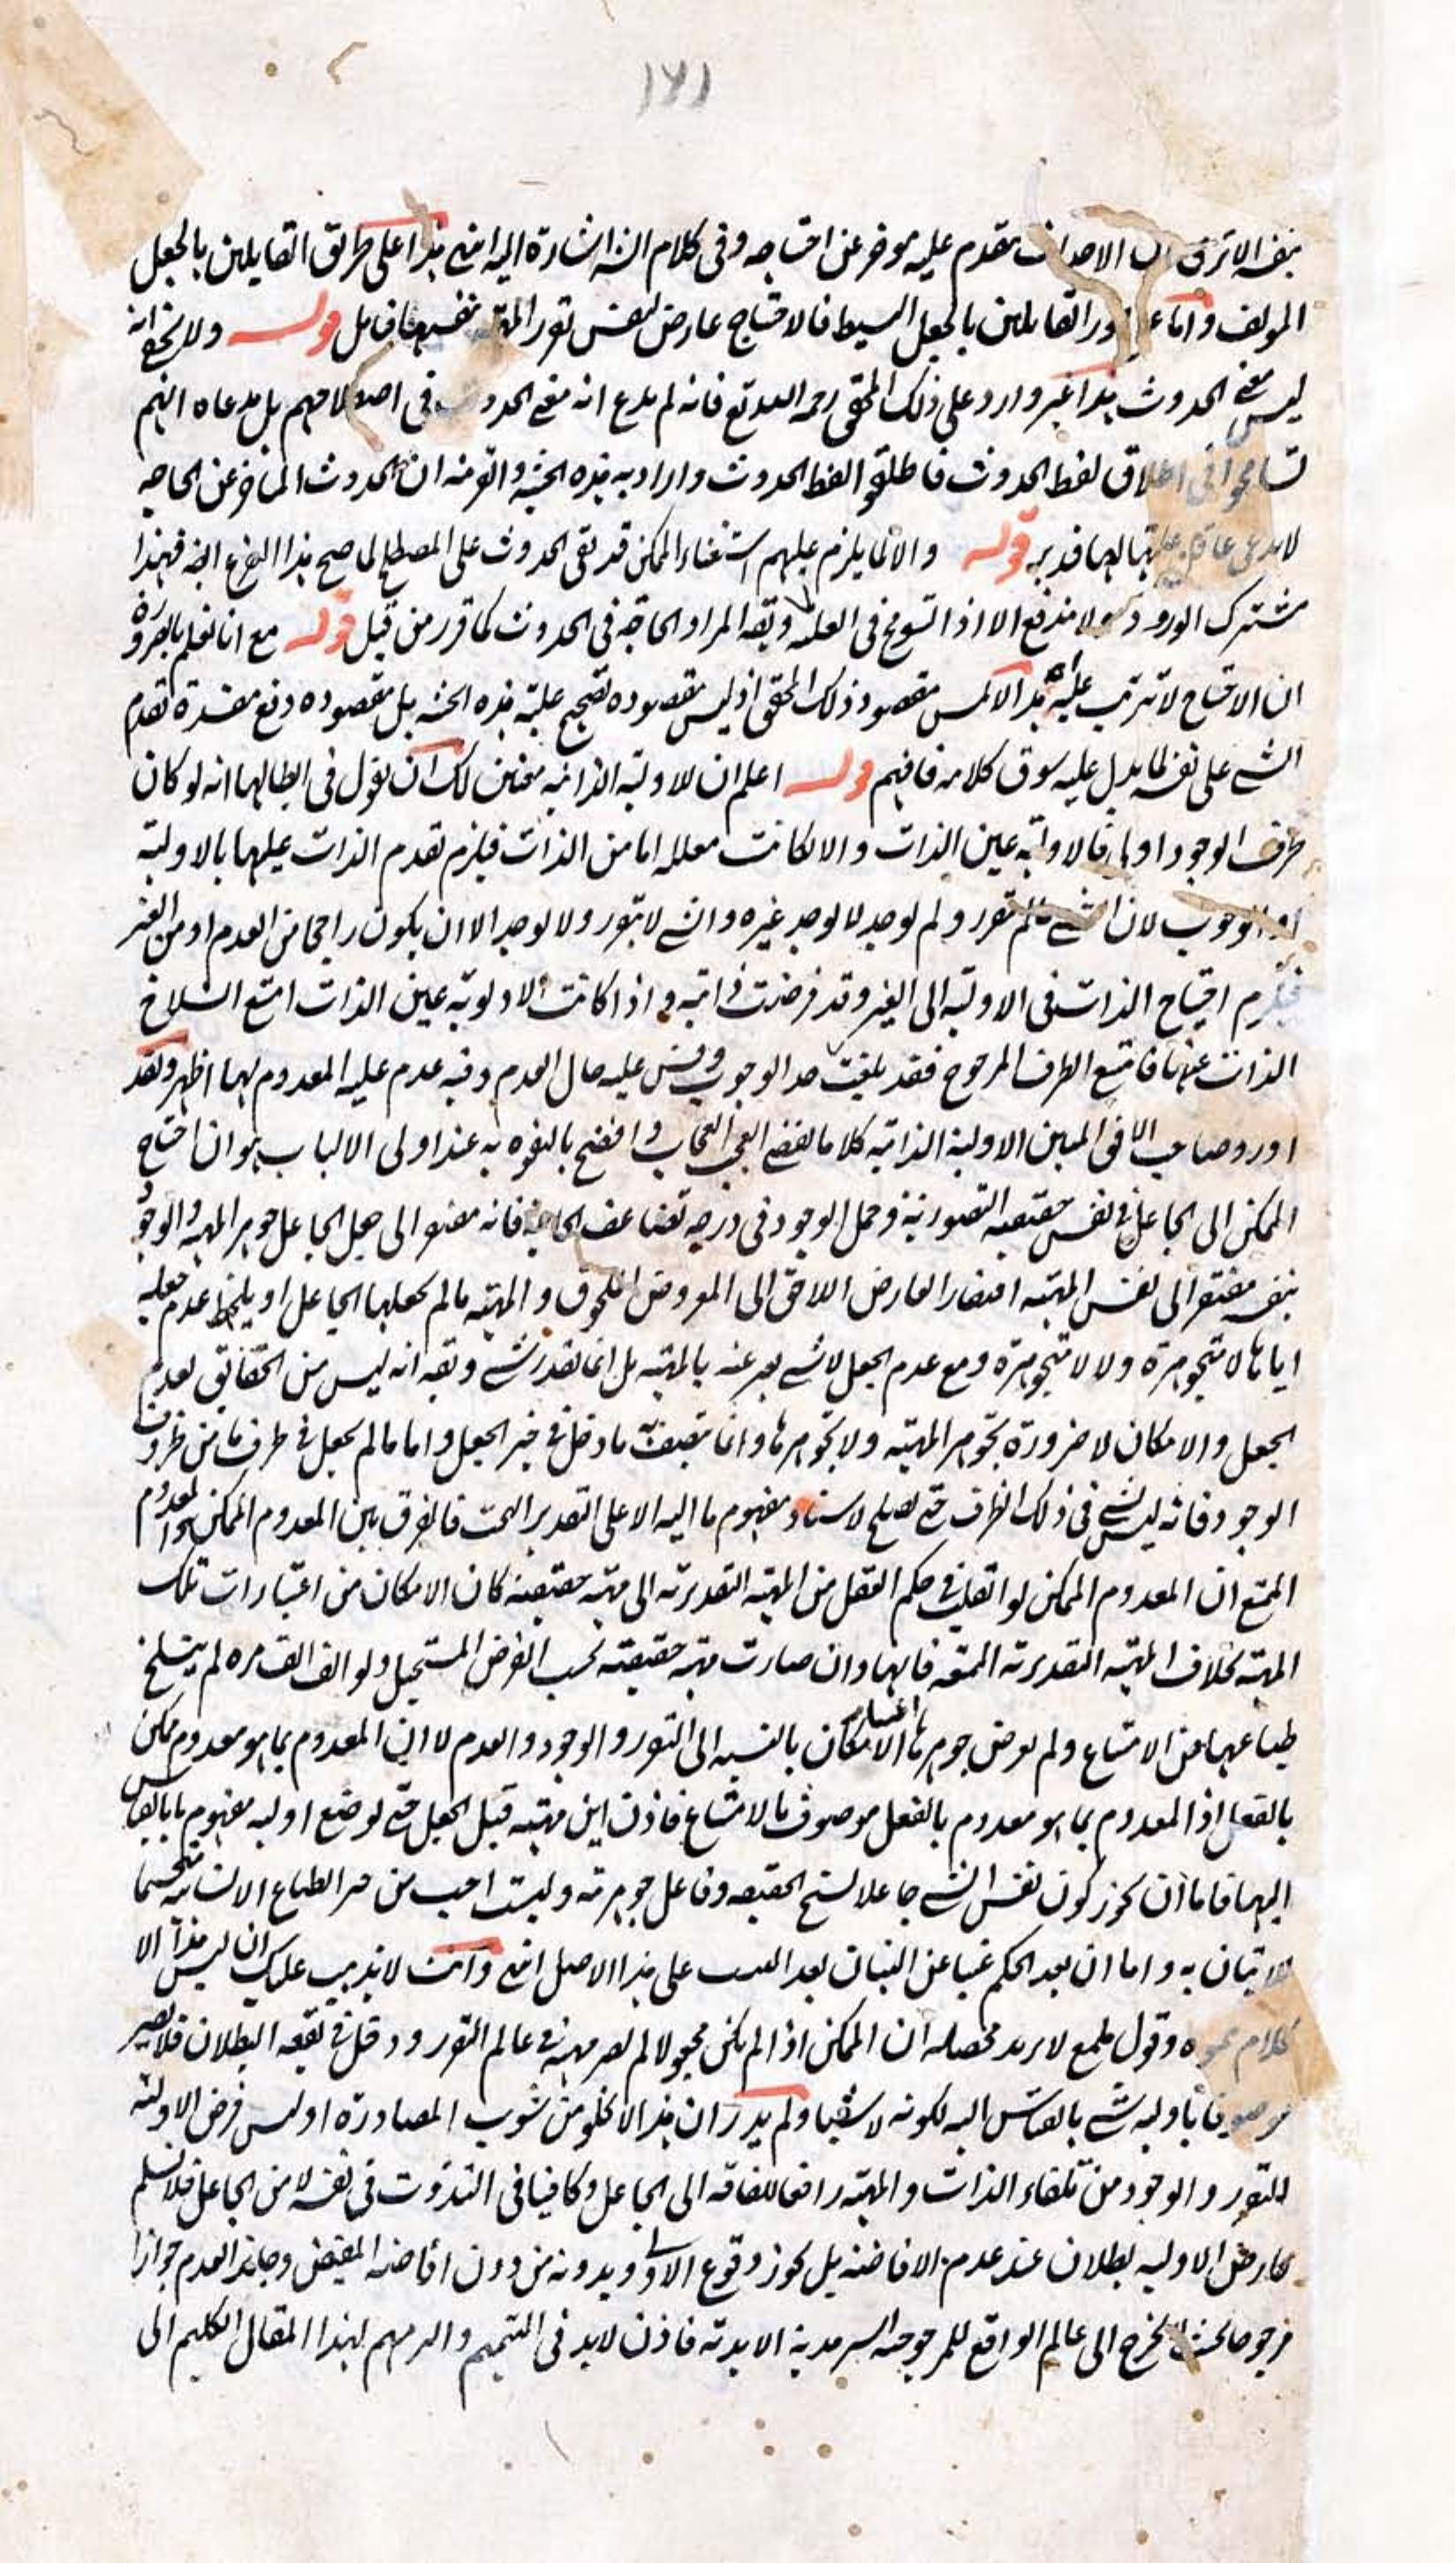 ١٧١
بنفسه لا ترى ان الاحداث متقدم عليه موخر عن احتياجه وفى كلام الش اشارة اليه انتهى هذا على طريق القايلين بالجعل
المولف واما على القايلين بالجعل البسيط فالاحتياج عارض لنفس تقرر المهية نفسها فتامل قوله ولا يخفى انه
ليس معنى الحدوث هذا غير وارد على ذلك المحقق رحمه الله تع فانه لم يدع انه معنى الحدوث فى اصطلاحهم بل مدعاه انهم
تسامحوا فى اطلاق لفظ الحدوث فاطلقوا لفظ الحدوث وارادبه هذه الحيثية والقرينة ان الحدوث المتاخر عن الحاجه
لا يدعى عاقل عليتها لها فتدبر قوله والا لما يلزم عليهم استغناء الممكن قد بقى الحدوث على المصطلح لما صح هذا الفرع ايضا فهذا
مشترك الورود ولا مندفع الا اذا التسويح فى العلة ويقه المراد الحاجة فى الحدوث كما قرر من قبل قوله مع انا نعلم بالضرورة
ان الاحتياج لا تترتب عليه اه هذا لا يمس مقصود ذلك المحقق اذ ليس مقصوده تصحيح علية هذه الحيثية بل مقصوده دفع مفسدة تقدم
الشى على نفسه كما يدل عليه سوق كلامه فافهم قوله اعلم ان للاولية الذاتية معنيين لك ان تقول فى ابطالها انه لو كان
طرف الوجود اولى فالاولية عين الذات والا لكانت معللة اما من الذات فيلزم تقدم الذات عليها بالاولية
او الوجوب لان الشى ما لم يتقرر ولم يوجد لا يوجد غيره والشى لا يتقرر ولا يوجد الا ان يكون راجحا من العدم او من الغير
فيلزم احتياج الذات فى الاولية الى الغير وقد فرضت ذاتية واذا كانت الاولوية عين الذات امتنع انسلاخ
الذات عنها فامتنع الطرف المرجوح فقد بلغت حد الوجوب وقس عليه حال العدم وفيه عدم علية المعدوم لهما اظهر ولقد
اورد صاحب الافق المبين الاولية الذاتية كلاما يفضى العجب العجاب وافضح بالتفوه به عند اولى الالباب هو ان احتياج
الممكن الى الجاعل فى نفس حقيقته التصورية وحمل الوجود فى درجة تضاعف الحاجة فانه مفتقر الى جعل الجاعل جوهر المهية والوجود
بنفسه مفتقر الى نفس المهية افتقار العارض اللاحق الى المعروض الملحوق والمهية ما لم يجعلها الجاعل او يلحظ عدم جعله
اياها لا متجوهرة ولا لا متجوهرة ومع عدم الجعل لا شى يعبر عنه بالمهية بل انما تقدر شى ويقه انه ليس من الحقائق لعدم
الجعل والامكان لا ضرورة تجوهر المهية ولا تجوهرها وانما تتصف ما دخل فى حيز الجعل واما ما لم يجعل فى ظرف ما من ظروف
الوجود فانه ليس شى فى ذلك الظرف حتى يصلح لاسناد مفهوم ما اليه الا على التقدير البحت فالفرق بين المعدوم الممكن والمعدوم
الممتنع ان المعدوم الممكن لو انقلب فى حكم العقل من المهية التقديرية الى مهية حقيقية كان الامكان من اعتبارات تلك
المهية بخلاف المهية التقديرية الممتنعة فانها وان صارت مهية حقيقية بحسب الفرض المستحيل ولو الف الف مرة لم ينسلخ
طباعها من الامتناع ولم يعرض جوهرها اعتبار الامكان بالنسبة الى التقرر والوجود والعدم لا ان المعدوم بما هو معدوم ممكن
بالفعل اذ المعدوم بما هو معدوم بالفعل موصوف بالامتناع فاذن اين مهية قبل الجعل حتى توضع اولية مفهوم ما بالقياس
اليها فاما ان يجوز كون نفس الشى جاعلا لسنخ الحقيقة وفاعل جوهريته وليت احب من حر الطباع الانسانية تجسما
للاتيان به واما ان يعد الحكم غنيا عن البيان بعد على هذا الاصل انتهى وانت لا يذهب عليك ان ليس هذا الا
كلام مموه وقول ملمع لا يريد محصله ان الممكن اذا لم يكن مجعولا لم يصر مهية فى عالم التقرر ودخل فى بقعة البطلان فلا يصير
موصوفا باولية شى بالقياس اليه لكونه لا شيئا ولم يدر ان هذا لا يخلو من شوب المصادرة او ليس فرض الاولية
للتقرر والوجود من تلقاء الذات والمهية رافعا للفاقة الى الجاعل وكافيا فى التذوت فى نفسه لا من الجاعل فلا نسلم
على فارض الاولية بطلان عند عدم الافاضة بل يجوز وقوع الاولى وبدونه من دون افاضة المفيض وجانب العدم جوازا
مرجوحا بحيث لا يخرج الى عالم الواقع للمرجوحية السرمدية الابدية فاذن لابد فى التتميم والمرمهم لهذا المقال الكليم الى